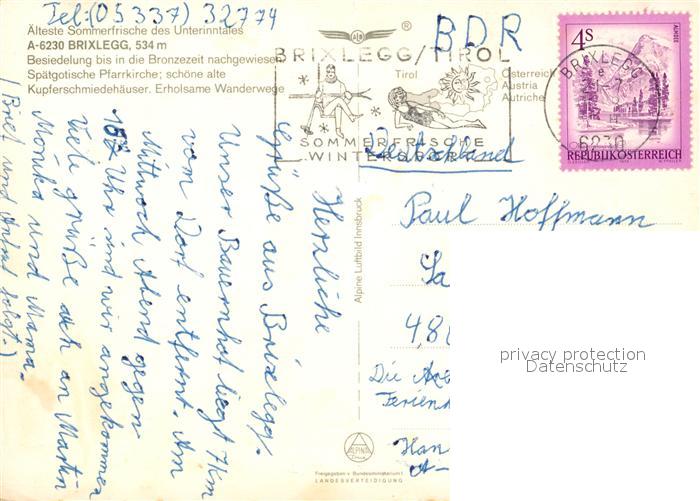 Tel: (05337) 32774
Älteste Sommerfrische des Unterinntales
A-6230 BRIXLEGG, 534 m
Besiedelung bis in die Bronzezeit nachgewiesen
Spätgotische Pfarrkirche; schöne alte
Kupferschmiedehäuser. Erholsame Wanderwege
BRIXLEGG/TIROL
SOMMERFRISCHE
WINTERSPORT
Tirol
Österreich
Austria
Autriche
BDR
Deutschland
4S
ALMSEE
REPUBLIK ÖSTERREICH
BRIXLEGG
6230
Herzliche
Grüße aus Brixlegg.
Unser Bauernhof liegt 7km
vom Dorf entfernt. Am
Mittwoch Abend gegen
Uhr sind wir angekommen
Viele Grüße auch an Martin
Monika und Mama.
(Brief und Anruf folgt.)
Alpine Luftbild Innsbruck
Paul Hoffmann
4,8
Die
Ferien
Han
A-
ALPINA
Freigegeben v. Bundesministerium f.
LANDESVERTEIDIGUNG
privacy protection
Datenschutz